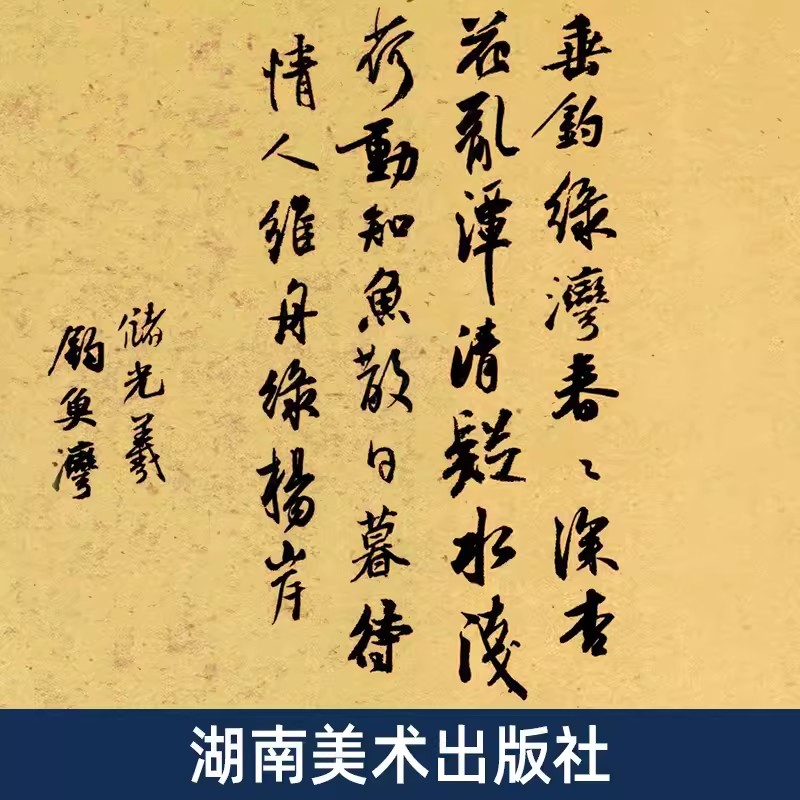 垂釣綠灣春〻深杏
花亂潭清疑水淺
荷動知魚散日暮待
情人維舟綠楊岸
儲光羲
釣魚灣
湖南美术出版社